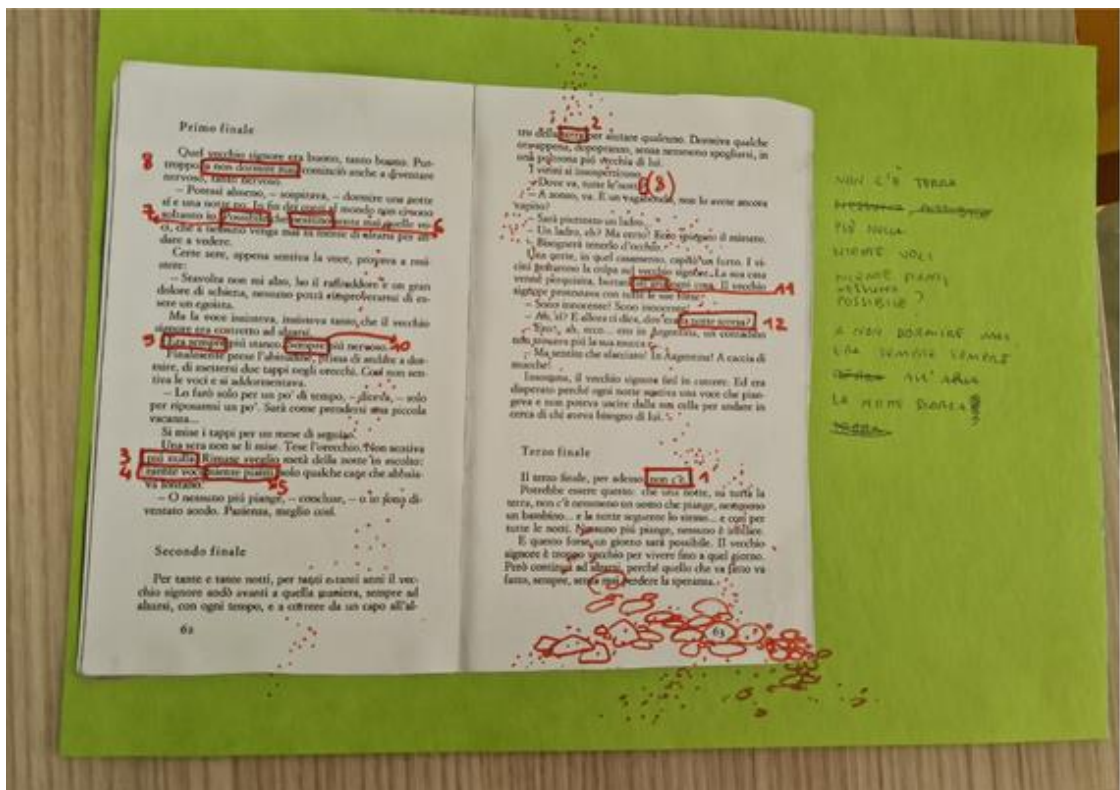 Primo finale
Quel vecchio signore era buono, tanto buono. Pur-
troppo, a non dormire mai, cominciò anche a diventare
nervoso, tanto nervoso.
– Potessi almeno, – sospirava, – dormire una notte
sì e una notte no. In fin dei conti al mondo non ci sono
soltanto io. Possibile che nessuno senta mai quelle vo-
ci, che a nessuno venga mai in mente di alzarsi per an-
dare a vedere.
Certe sere, appena sentiva la voce, provava a resi-
stere:
– Stavolta non mi alzo, ho il raffreddore e un gran
dolore di schiena, nessuno potrà rimproverarmi di es-
sere un egoista.
Ma la voce insisteva, insisteva tanto, che il vecchio
signore era costretto ad alzarsi.
Era sempre più stanco, sempre più nervoso.
Finalmente prese l'abitudine, prima di andare a dor-
mire, di mettersi due tappi negli orecchi. Così non sen-
tiva le voci e si addormentava.
– Lo farò solo per un po' di tempo, – diceva, – solo
per riposarmi un po'. Sarà come prendersi una piccola
vacanza...
Si mise i tappi per un mese di seguito.
Una sera non se li mise. Tese l'orecchio. Non sentiva
più nulla. Rimase sveglio metà della notte in ascolto:
niente voci, niente pianti, solo qualche cane che abbaia-
va lontano.
– O nessuno più piange, – concluse, – o io sono di-
ventato sordo. Pazienza, meglio così.
Secondo finale
Per tante e tante notti, per tanti e tanti anni il vec-
chio signore andò avanti a quella maniera, sempre ad
alzarsi, con ogni tempo, e a correre da un capo all'al-
62
8
7
6
9
10
3
4
5
tro della terra per aiutare qualcuno. Dormiva qualche
ora appena, dopopranzo, senza nemmeno spogliarsi, in
una poltrona più vecchia di lui.
I vicini si insospettirono.
– Dove va, tutte le notti?
– A zonzo, va. È un vagabondo, non lo avete ancora
capito?
– Sarà piuttosto un ladro.
– Un ladro, eh? Ma certo! Ecco spiegato il mistero.
– Bisognerà tenerlo d'occhio.
Una notte, in quel casamento, capitò un furto. I vi-
cini gettarono la colpa sul vecchio signore. La sua casa
venne perquisita, buttarono all'aria ogni cosa. Il vecchio
signore protestava con tutte le sue forze:
– Sono innocente! Sono innocente!
– Ah, sì? E allora ci dica, dov'era la notte scorsa?
– Ero, ah, ecco... ero in Argentina, un contadino
non trovava più la sua mucca e...
– Ma sentite che sfacciato! In Argentina! A caccia di
mucche!
Insomma, il vecchio signore finì in carcere. Ed era
disperato perché ogni notte sentiva una voce che pian-
geva e non poteva uscire dalla sua cella per andare in
cerca di chi aveva bisogno di lui.
Terzo finale
Il terzo finale, per adesso, non c'è.
Potrebbe essere questo: che una notte, su tutta la
terra, non c'è nemmeno un uomo che piange, nemmeno
un bambino... e la notte seguente lo stesso... e così per
tutte le notti. Nessuno più piange, nessuno è infelice.
E questo forse un giorno sarà possibile. Il vecchio
signore è troppo vecchio per vivere fino a quel giorno.
Però continua ad alzarsi, perché quello che va fatto va
fatto, sempre, senza mai perdere la speranza.
63
2
(8)
11
12
1
NON C'È TERRA
PIÙ NULLA
NIENTE VOCI
NIENTE PIANTI,
NESSUNO ?
POSSIBILE ?
A NON DORMIRE MAI
ERA SEMPRE SEMPRE
ALL'ARIA
LA NOTTE SCORSA ?